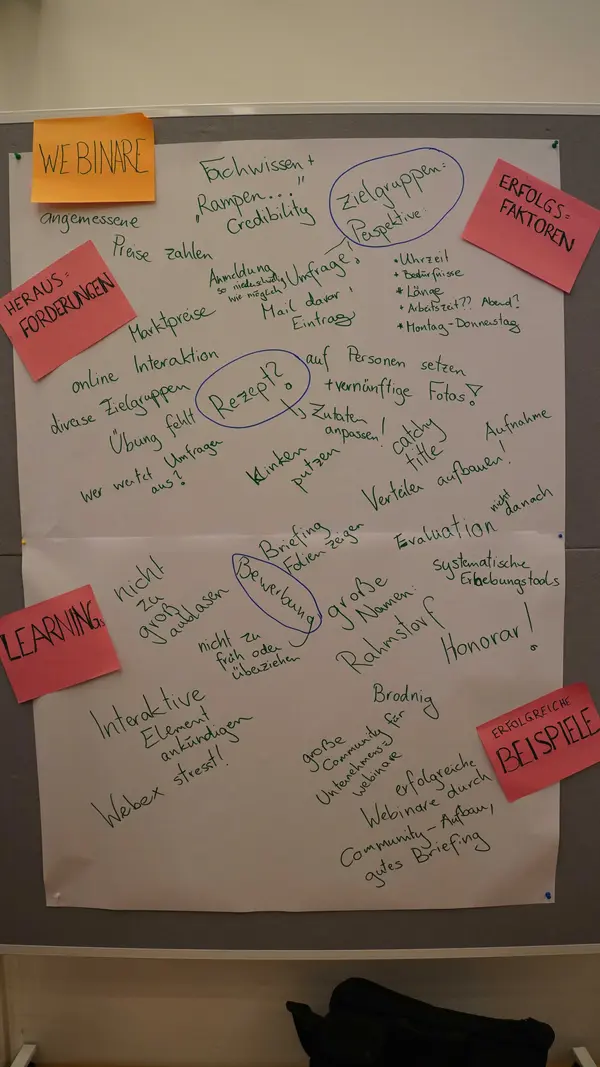 WEBINARE
Fachwissen +
„Rampen..."
Credibility
Zielgruppen:
Perspektive
ERFOLGS-
FAKTOREN
angemessene
Preise zahlen
HERAUS-
FORDERUNGEN
Marktpreise
Anmeldung
so niederschwellig
wie möglich
Umfrage,
Mail davor!
Eintrag
* Uhrzeit
* Bedürfnisse
* Länge
* Arbeitszeit?? Abend?
* Montag-Donnerstag
online Interaktion
diverse Zielgruppen
Übung fehlt
wer wertet Umfragen
aus?
Rezept?
Zutaten
anpassen!
auf Personen setzen
+ vernünftige Fotos!
Klinken
putzen
catchy
title
Aufnahme
Verteiler aufbauen!
nicht danach
Evaluation
systematische
Erhebungstools
Briefing
Folien zeigen
Bewerbung
nicht
zu
groß
aufblasen
nicht zu
früh oder
überziehen
große
Namen:
Rahmstorf
Honorar!
Brodnig
LEARNINGs
Interaktive
Element
ankündigen
Webex stresst!
ERFOLGREICHE
BEISPIELE
große
Community für
Unternehmens-
webinare
erfolgreiche
Webinare durch
Community-Aufbau,
gutes Briefing